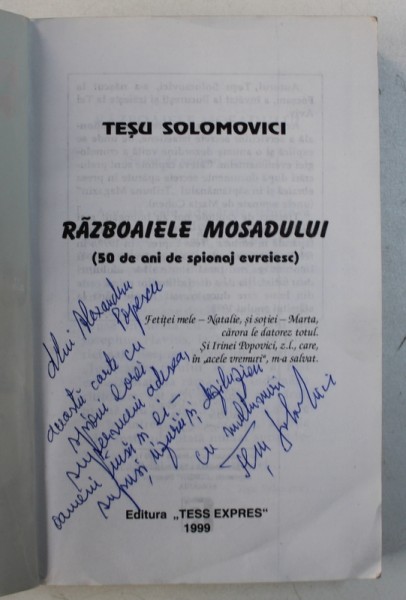 TEŞU SOLOMOVICI
RĂZBOAIELE MOSADULUI
(50 de ani de spionaj evreiesc)
Fetiţei mele – Natalie, şi soţiei – Marta,
cărora le datorez totul.
Şi Irinei Popovici, z.l., care,
în „acele vremuri", m-a salvat.
Alexandru
Popescu
această carte cu
spioni
oameni şi ei –
supuşi uzurii şi
cu mulţumiri
Editura „TESS EXPRES"
1999